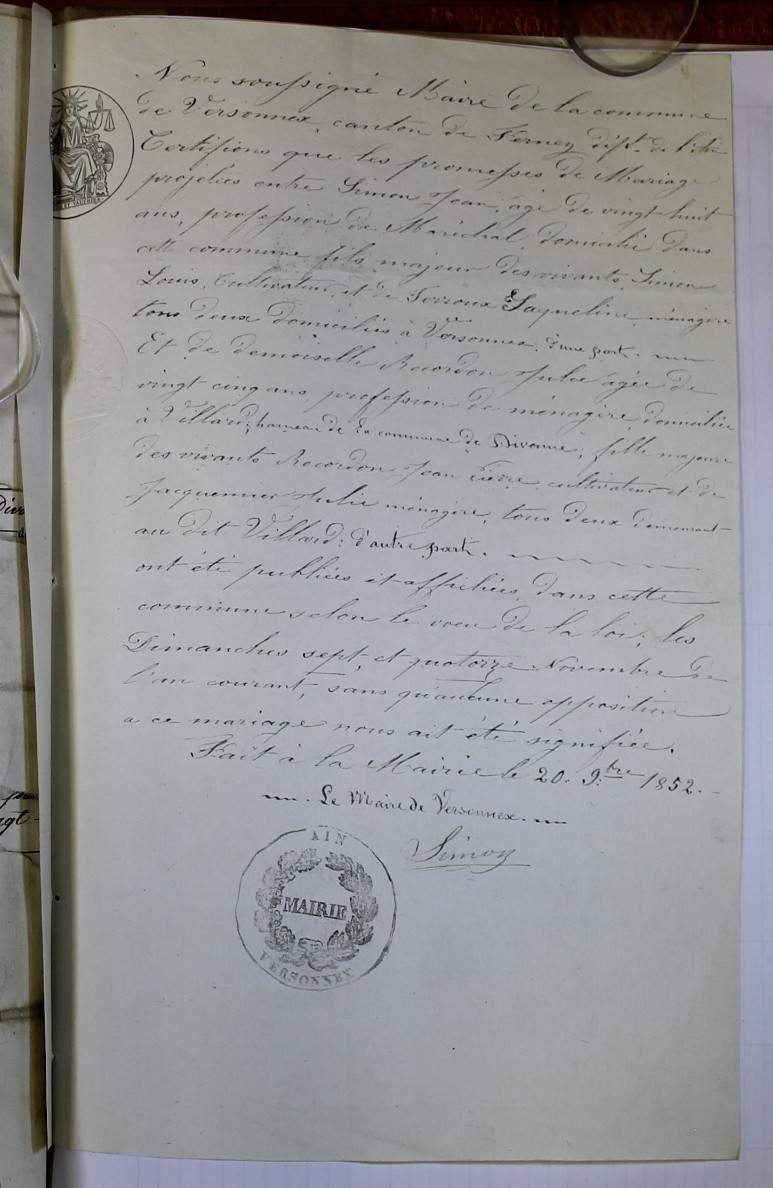 Nous soussigné Maire de la commune
de Versonnex, canton de Ferney dépt. de l'Ain
Certifions que les promesses de Mariage
projetées entre Simon Jean, âgé de vingt-huit
ans, profession de Maréchal, domicilié dans
cette commune fils majeur des vivants, Simon
Louis, Cultivateur, et de Jaqueline, ménagère
tous deux domiciliés à Versonnex, d'une part.
Et de demoiselle Recordon Julie âgée de
vingt cinq ans, profession de ménagère, domiciliée
à Villard, hameau de la commune de Divonne, fille majeure
des vivants Recordon Jean Pierre, cultivateur et de
Jacquemier Julie ménagère, tous deux demeurant
au dit Villard: d'autre part.
ont été publiées et affichées dans cette
commune selon le voeu de la loi, les
Dimanches sept, et quatorze Novembre de
l'an courant, sans qu'aucune opposition
a ce mariage nous ait été signifiée.
Fait à la Mairie le 20. 9.bre 1852.
Le Maire de Versonnex.
Simon
AIN
MAIRIE
VERSONNEX